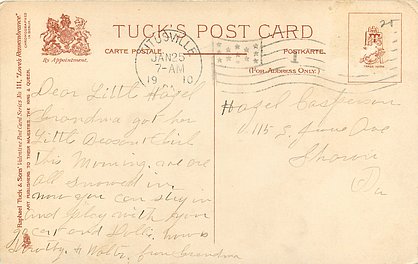 TUCK'S POST CARD
CARTE POSTALE.
POSTKARTE.
(FOR ADDRESS ONLY.)
By Appointment.
Raphael Tuck & Sons' Valentine Post Card Series No 111, "Love's Remembrance"
ART PUBLISHERS TO THEIR MAJESTIES THE KING & QUEEN.
TITUSVILLE
JAN 25
7-AM
1910
Dear Little Hazel
Grandma got her
little
this Morning. we are
all snowed in.
now you can stay in
and play with your
go cart and Dollie. how is
Dorothy & from Grandma
Hazel
115 S.
Sharon
Pa